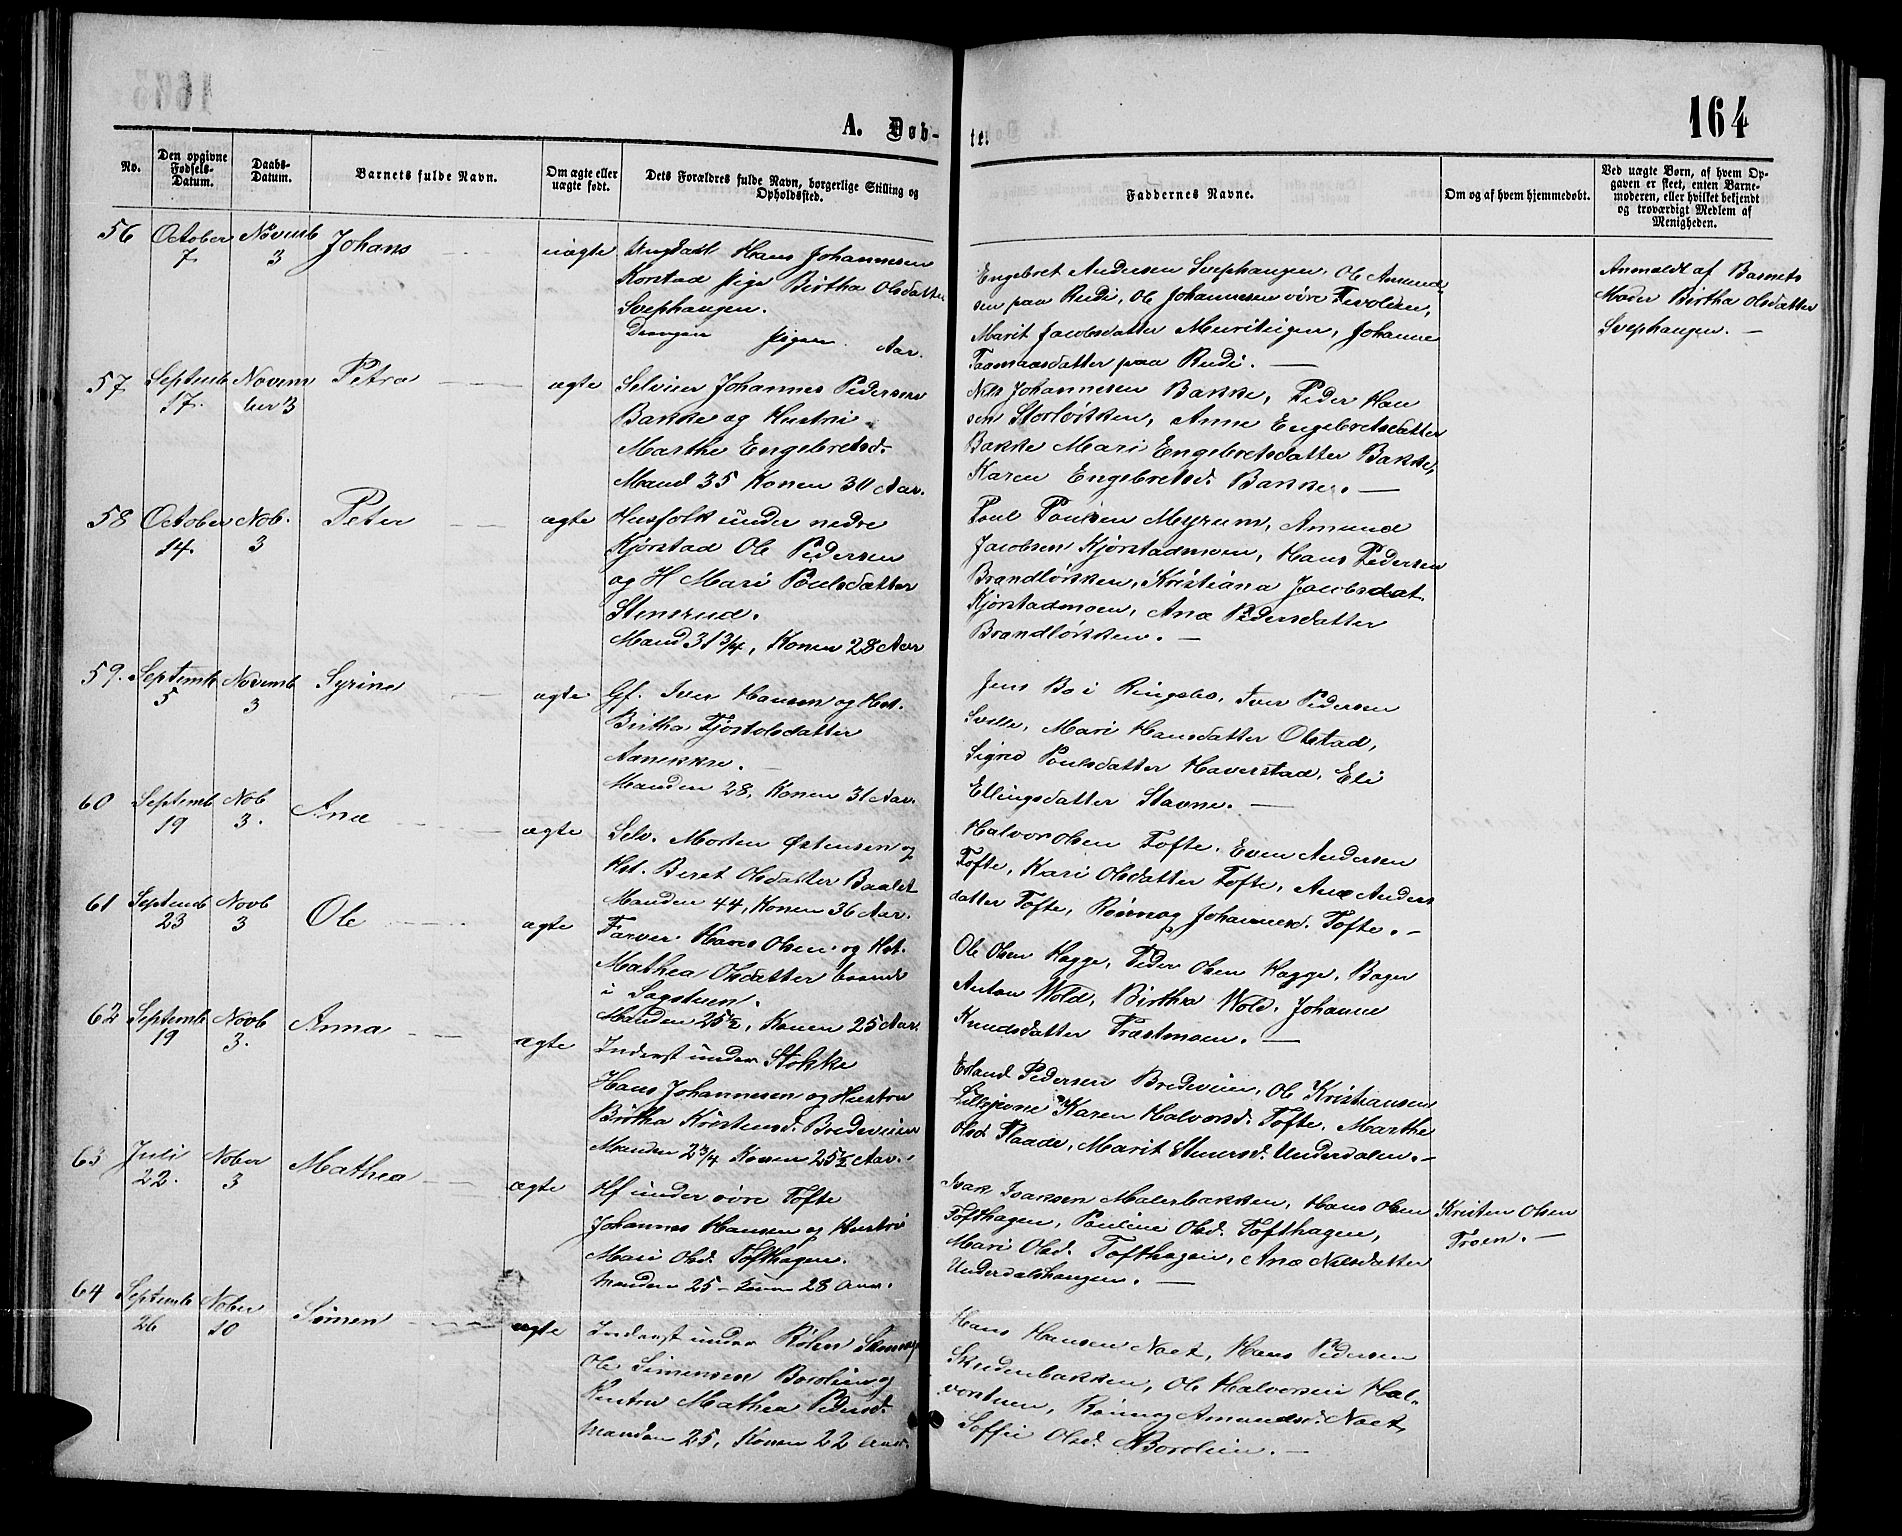 164
A. Døb-
te.
No.
Den opgivne Fødsels-Datum.
Daabs-Datum.
Barnets fulde Navn.
Om ægte eller uægte født.
Dets Forældres fulde Navn, borgerlige Stilling og Opholdssted.
Faddernes Navne.
Om og af hvem hjemmedøbt.
Ved uægte Børn, af hvem Op-
gaven er skeet, enten Barne-
moderen, eller hvilket bekjendt
og troværdigt Medlem af
Menigheden.
56 October 7 Novemb 3 Johans uægte
Ungkarl Hans Johannesen
Korstad Pige Birtha Olsdatter
Svephaugen.
Drengen Pigen Aar.
Engebret Andersen Svephaugen, Ole Amund-
sen paa Rudi, Ole Johannesen øvre
Marit Jacobsdatter Johanne
Taamaasdatter paa Rudi. —
Anmeldt af Barnets
Moder Birtha Olsdatter
Svephaugen. —
57 Septemb 17. Novem ber 3 Petra ægte
Selveier Johannes Pedersen
Bakke og Hustru
Marthe Engebretsd.
Mand 35 Konen 30 Aar.
Nils Johannesen Bakke, Peder Han
sen Storløkken, Anne Engebretsdatter
Bakke Mari Engebretsdatter Bakke,
Karen Engebretsd. Bakke. —
58 October 14. Nob. 3 Peter ægte
Husfolk under nedre
Kjørstad Ole Pedersen
og H Mari Poulsdatter
Stensrud.
Mand 31 3/4, Konen 28 Aar
Poul Poulsen Myrum, Amund
Jacobsen Kjørstadmoen, Hans Pedersen
Brandløkken, Kristiana Jacobsdat.
Kjørstadmoen, Ane Pedersdatter
Brandløkken. —
59. Septemb 5 Novemb 3 Syrine ægte
Gf. Iver Hansen og Hst.
Birtha Tjostolsdatter
Aanekke. —
Manden 28, Konen 31 Aar.
Jens Bø i Ringebo, Iver Pedersen
Mari Hansdatter Olstad,
Sigrid Poulsdatter Haverstad, Eli
Ellingsdatter Stavne. —
60 Septemb 19 Nob 3. Ane ægte
Selv. Morten Østensen og
Hst. Beret Olsdatter
Manden 44, Konen 36 Aar.
Halvor Olsen Tofte, Even Andersen
Tofte, Kari Olsdatter Tofte, Ane Anders
datter Tofte, Rønnog Johannesd. Tofte. —
61 Septemb 23 Novb 3 Ole ægte
Farver Hans Olsen og Hst.
Mathea Olsdatter boende
i Sagstuen.
Manden 25 1/2, Konen 25 Aar.
Ole Olsen Hagge, Peder Olsen Hagge, Bager
Anton Wold, Birthe Wold, Johanne
Knudsdatter Præstmoen. —
62 Septemb 19 Novb 3. Anna ægte
Inderst under Stokke
Hans Johannesen og Hustru
Birtha Kristensd. Bredeveien
Manden Konen 25 1/2 Aar.
Erland Pedersen Bredeveien, Ole Kristiansen
Karen Halvorsd. Tofte, Marthe
Olsd Flaade, Marit Underdalen. —
63 Juli 22. Nober 3 Mathea ægte
Hf under øvre Tofte
Johannes Hansen og Hustru
Mari Olsd. Tofthagen.
Manden 25 — Konen 28 Aar.
Isak Isaksen Malerbakken, Hans Olsen
Tofthagen, Pauline Olsd. Tofthagen,
Mari Olsd. Tofthagen, Ane Nilsdatter
Underdalshaugen. —
Kristen Olsen
Troen. —
64 Septemb 26 Nober 10 Simen ægte
Inderst under
Ole Simensen Borolien og
Hustru Mathea Pedersd.
Manden 25, Konen 22 Aar.
Hans Hansen Hans Pedersen
Skredenbakken, Ole Halvorsen Hal-
vorstuen, Rønnog Amundsd.
Soffie Olsd. Borolien. —